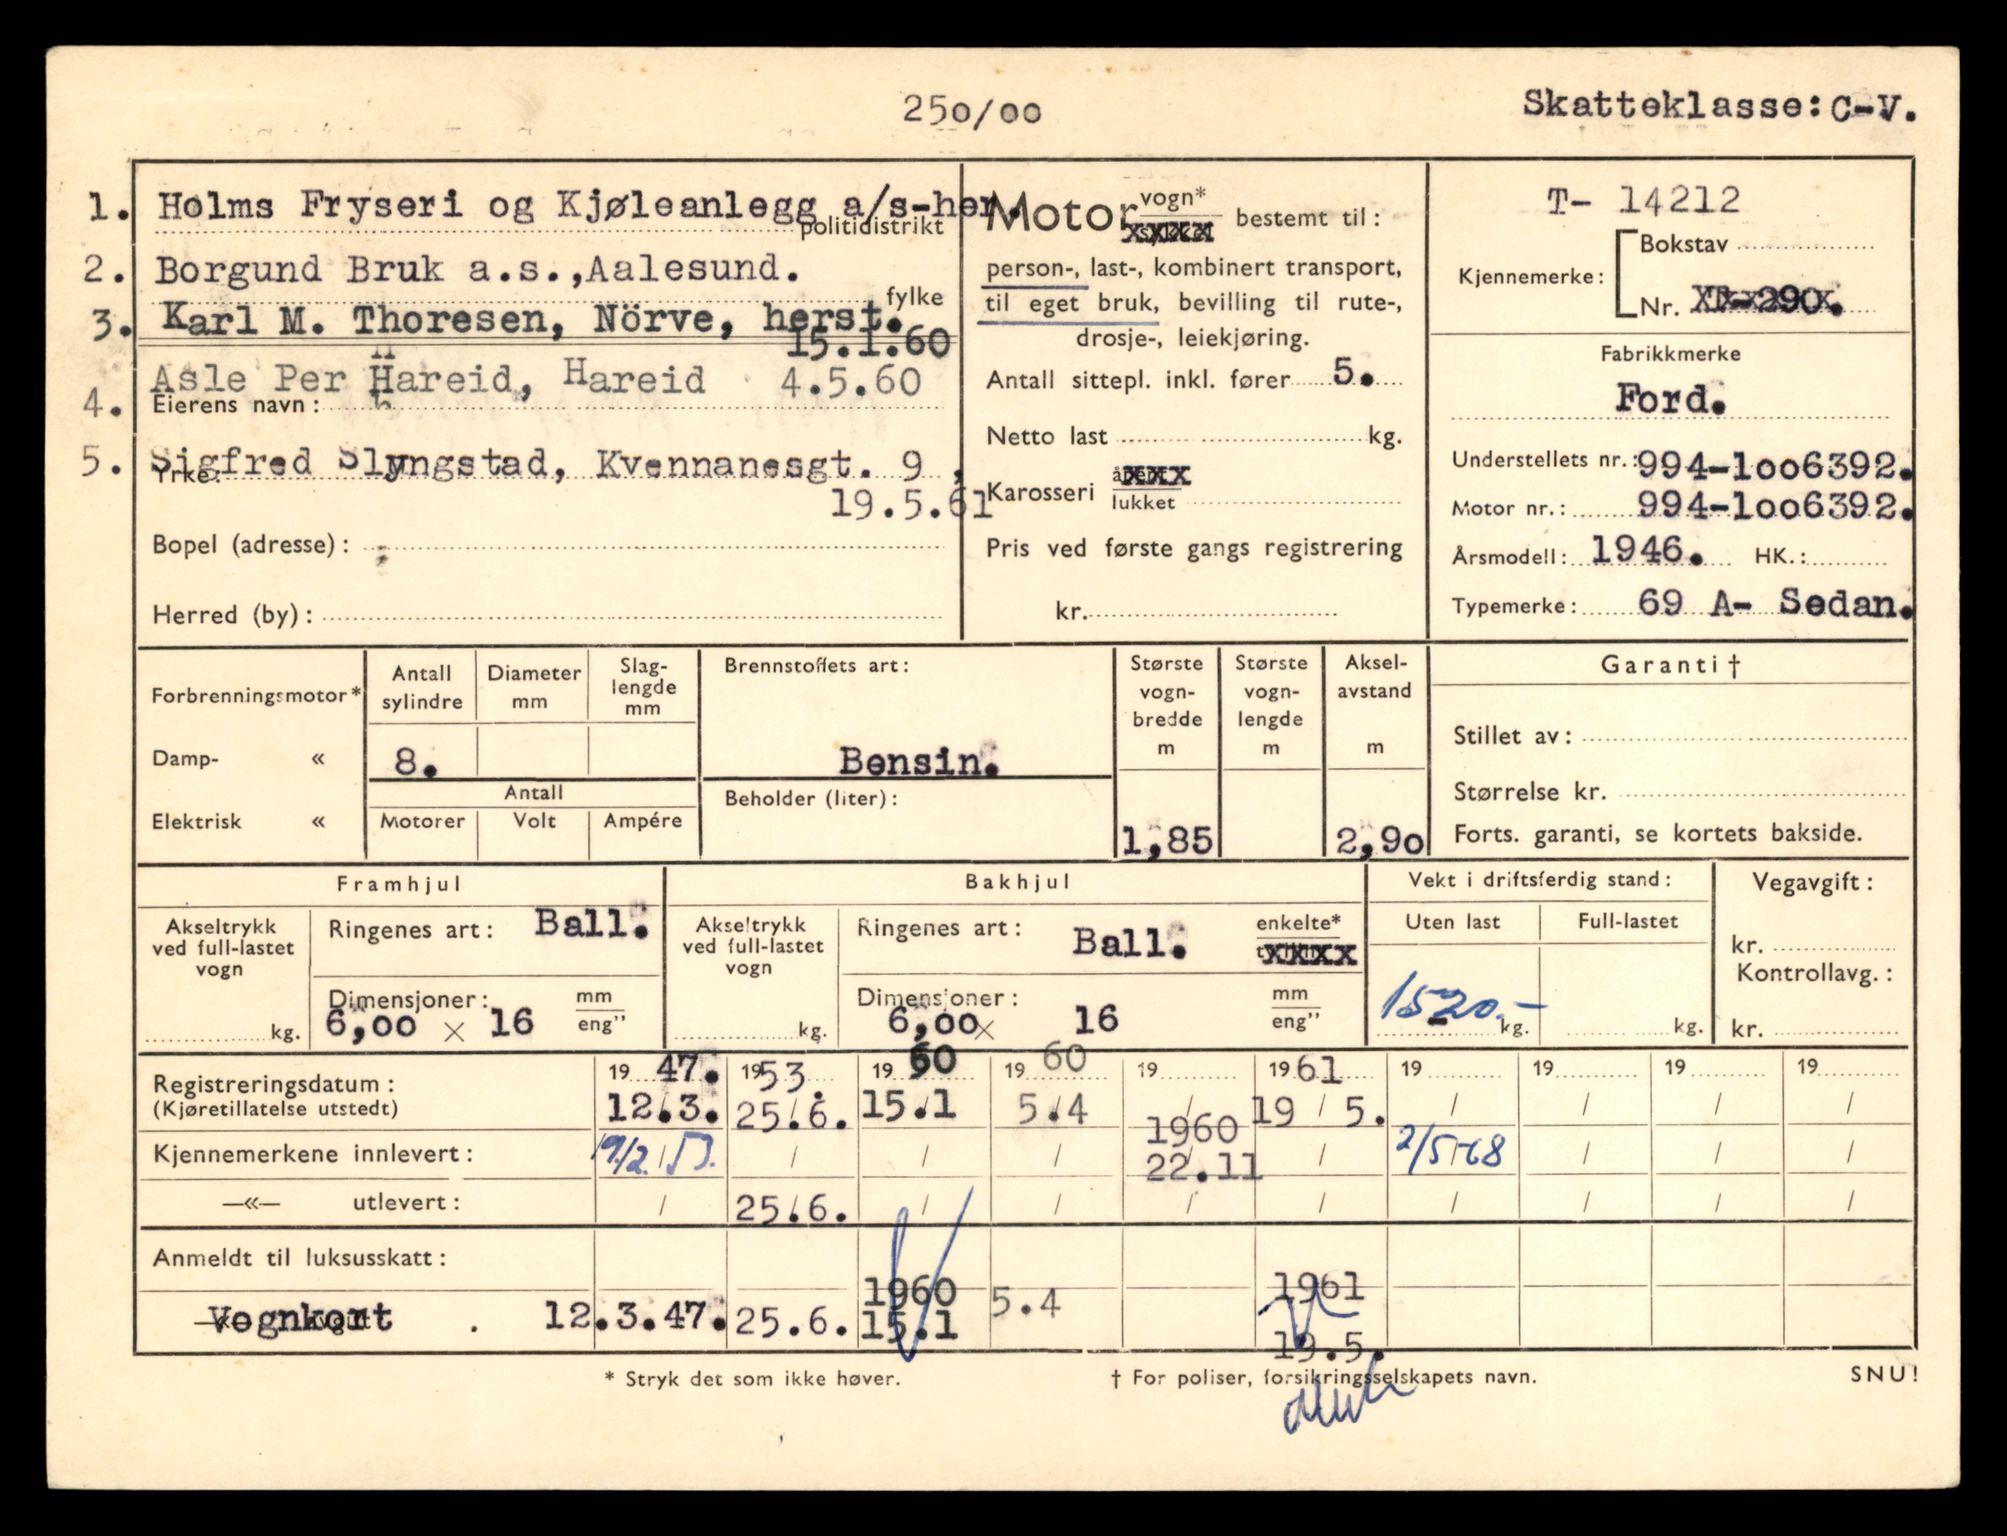 250/00
Skatteklasse: C-V.
1. Holms Fryseri og Kjøleanlegg a/s-her.
politidistrikt
2. Borgund Bruk a.s.,Aalesund.
fylke
3. Karl M. Thoresen, Nörve, herst.
15.1.60
4. Asle Per Hareid, Hareid 4.5.60
Eierens navn:
5. Sigfred Slyngstad, Kvennanesgt. 9 ,
Yrke:
19.5.61
Bopel (adresse):
Herred (by):
Motor vogn* bestemt til:
xxxx
person-, last-, kombinert transport,
til eget bruk, bevilling til rute-,
drosje-, leiekjøring.
Antall sittepl. inkl. fører 5.
Netto last kg.
Karosseri xxx
lukket
Pris ved første gangs registrering
kr.
T- 14212
Kjennemerke: Bokstav
Nr. T-290.
Fabrikkmerke
Ford.
Understellets nr.: 994-1oo6392.
Motor nr.: 994-1oo6392.
Årsmodell: 1946. HK.:
Typemerke: 69 A- Sedan.
Forbrenningsmotor*
Damp- «
Elektrisk «
Antall sylindre
Diameter mm
Slag-lengde mm
8.
Antall
Motorer Volt Ampére
Brennstoffets art:
Bensin.
Beholder (liter):
Største vogn-bredde m
1,85
Største vogn-lengde m
Aksel-avstand m
2,9o
Garanti†
Stillet av:
Størrelse kr.
Forts. garanti, se kortets bakside.
Framhjul
Akseltrykk ved full-lastet vogn
kg.
Ringenes art: Ball.
Dimensjoner: mm
6,oo x 16 eng"
Bakhjul
Akseltrykk ved full-lastet vogn
kg.
Ringenes art: Ball. enkelte*
xxxx
Dimensjoner: mm
6,oo x 16 eng"
Vekt i driftsferdig stand:
Uten last Full-lastet
1520.-
kg. kg.
Vegavgift:
kr.
Kontrollavg.:
kr.
Registreringsdatum: 19 47. 19 53. 19 60 19 60 19 19 61 19 19 19 19
(Kjøretillatelse utstedt) 12.3. 25.6. 15.1 5.4 / 19/5. / / / /
Kjennemerkene innlevert: 19/2.53. / / / 1960 22.11 / 2/5-68 / / /
—«— utlevert: / 25.6. / / / / / / / /
Anmeldt til luksusskatt:
Vognkort . 12.3.47. 25.6. 1960 15.1 5.4 1961 19.5.
* Stryk det som ikke høver.
† For poliser, forsikringsselskapets navn.
SNU!